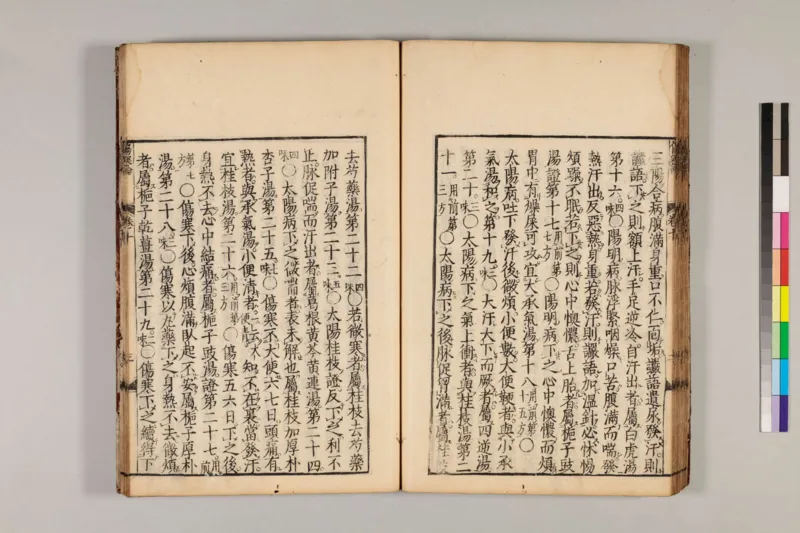 三陽合病腹滿身重口不仁面垢讝語遺尿發汗則
讝語下之則額上汗手足逆冷自汗出者屬白虎湯
第十六四味○陽明病脉浮緊咽燥口苦腹滿而喘發
熱汗出反惡熱身重若發汗則讝語加溫針必怵惕
煩躁不眠若下之則心中懊憹舌上胎者屬梔子豉
湯證第十七用前第七方○陽明病下之心中懊憹而煩
胃中有燥屎可攻宜大承氣湯第十八用前第十五方○
太陽病吐下發汗後微煩小便數大便鞕者與小承
氣湯和之第十九三味○大汗大下而厥者屬四逆湯
第二十三味○太陽病下之氣上衝者與桂枝湯第二
十一用前第三方○太陽病下之後脉促胷滿者屬桂枝
去芍藥湯第二十二四味○若微寒者屬桂枝去芍藥
加附子湯第二十三五味○太陽桂枝證反下之利不
止脉促喘而汗出者屬葛根黄芩黄連湯第二十四
四味○太陽病下之微喘者表未解也屬桂枝加厚朴
杏子湯第二十五七味○傷寒不大便六七日頭痛有
熱者與承氣湯小便清者知不在裏當發汗
宜桂枝湯第二十六用前第三方○傷寒五六日下之後
身熱不去心中結痛者屬梔子豉湯證第二十七用前
第七方○傷寒下後心煩腹滿臥起不安屬梔子厚朴
湯第二十八三味○傷寒以丸藥下之身熱不去微煩
者屬梔子乾薑湯第二十九二味○傷寒下之續得下
卷十